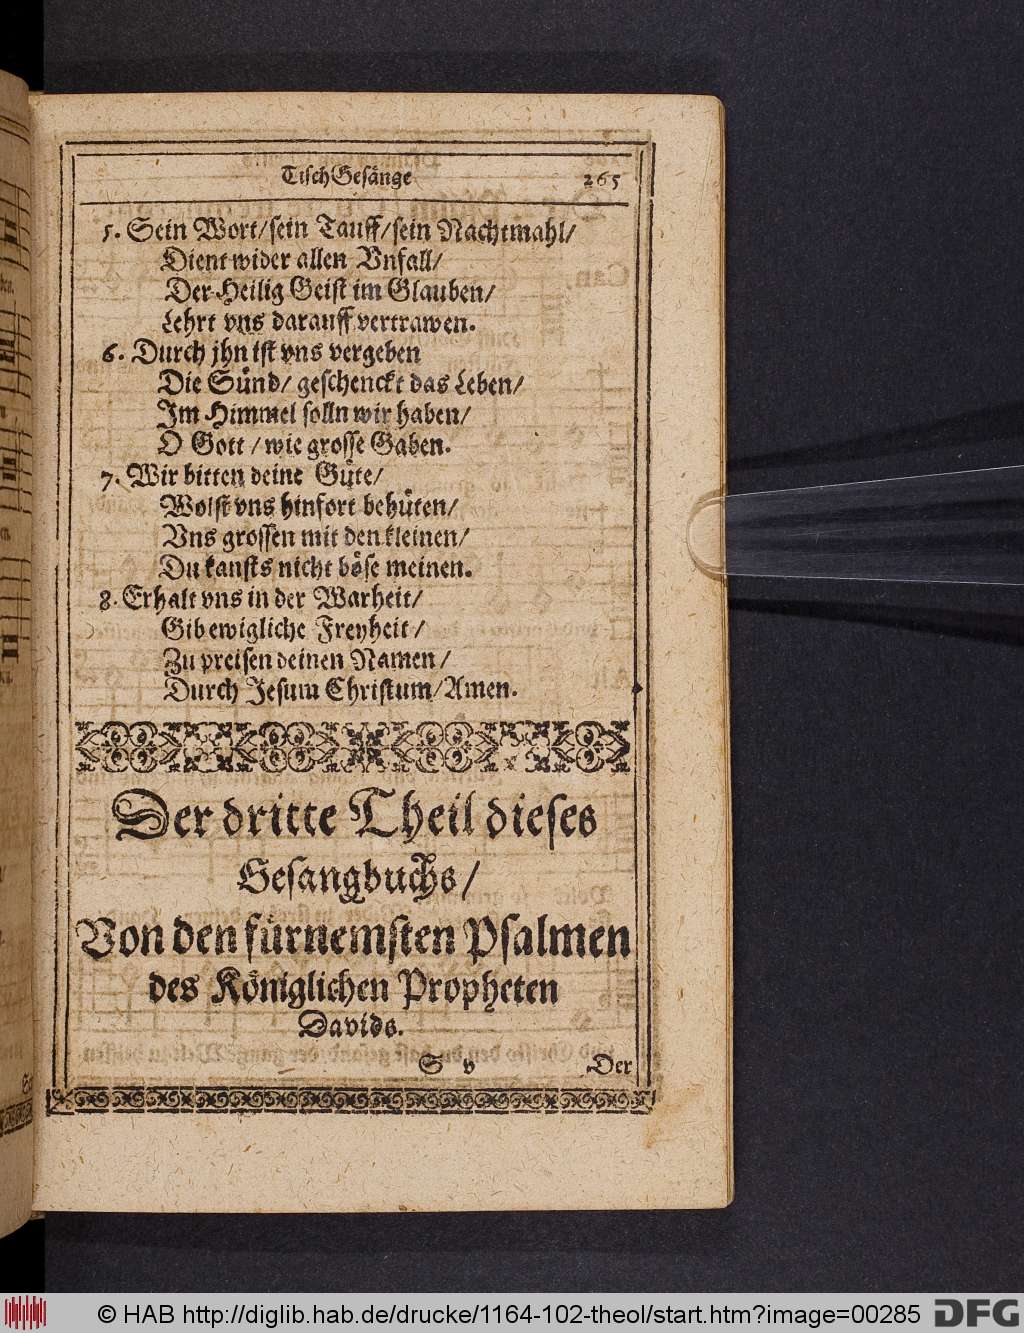 TischGesänge 265
5. Sein Wort/sein Tauff/sein Nachtmahl/
Dient wider allen Vnfall/
Der Heilig Geist im Glauben/
Lehrt vns darauff vertrawen.
6. Durch jhn ist vns vergeben
Die Sünd/ geschenckt das Leben/
Im Himmel solln wir haben/
O Gott/ wie grosse Gaben.
7. Wir bitten deine Güte/
Wolst vns hinfort behüten/
Vns grossen mit den kleinen/
Du kansts nicht böse meinen.
8. Erhalt vns in der Warheit/
Gib ewigliche Freyheit/
Zu preisen deinen Namen/
Durch Jesum Christum/Amen.
Der dritte Theil dieses
Gesangbuchs/
Von den fürnemsten Psalmen
des Königlichen Propheten
Davids.
S v Der
© HAB http://diglib.hab.de/drucke/1164-102-theol/start.htm?image=00285 DFG